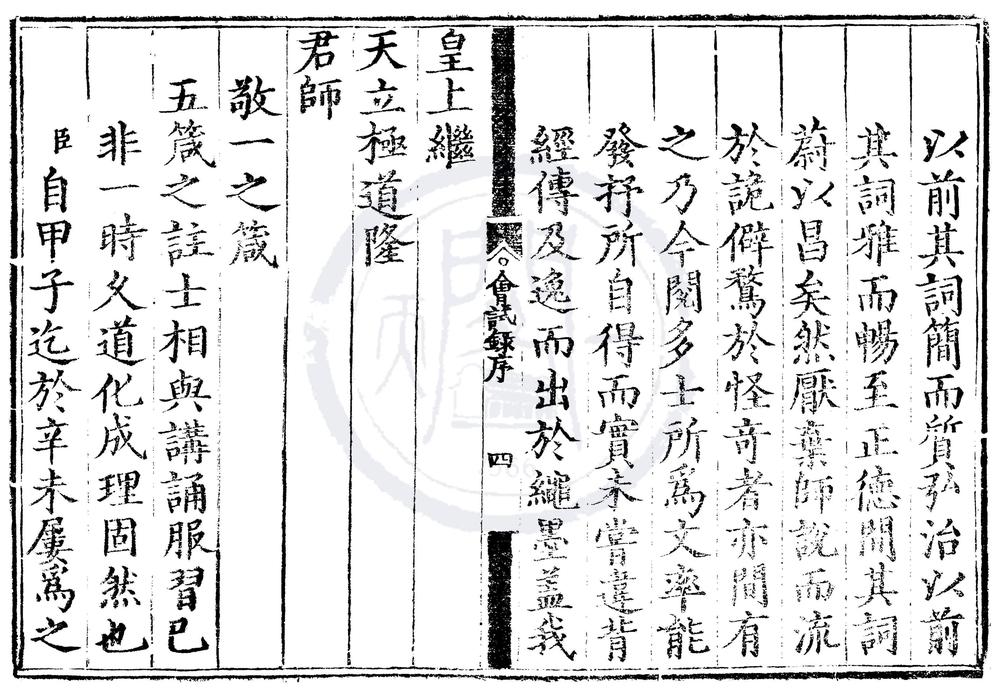 以前其詞簡而質弘治以前
其詞雅而暢至正德間其詞
蔚以昌矣然厭棄師說而流
於詭僻騖於怪竒者亦間有
之乃今閱多士所爲文率能
發抒所自得而實未甞違背
經傳及逸而出於繩墨盖我
會試録序 四
皇上繼
天立極道隆
君師
敬一之箴
五箴之註士相與講誦服習已
非一時久道化成理固然也
臣自甲子迄於辛未屢爲之